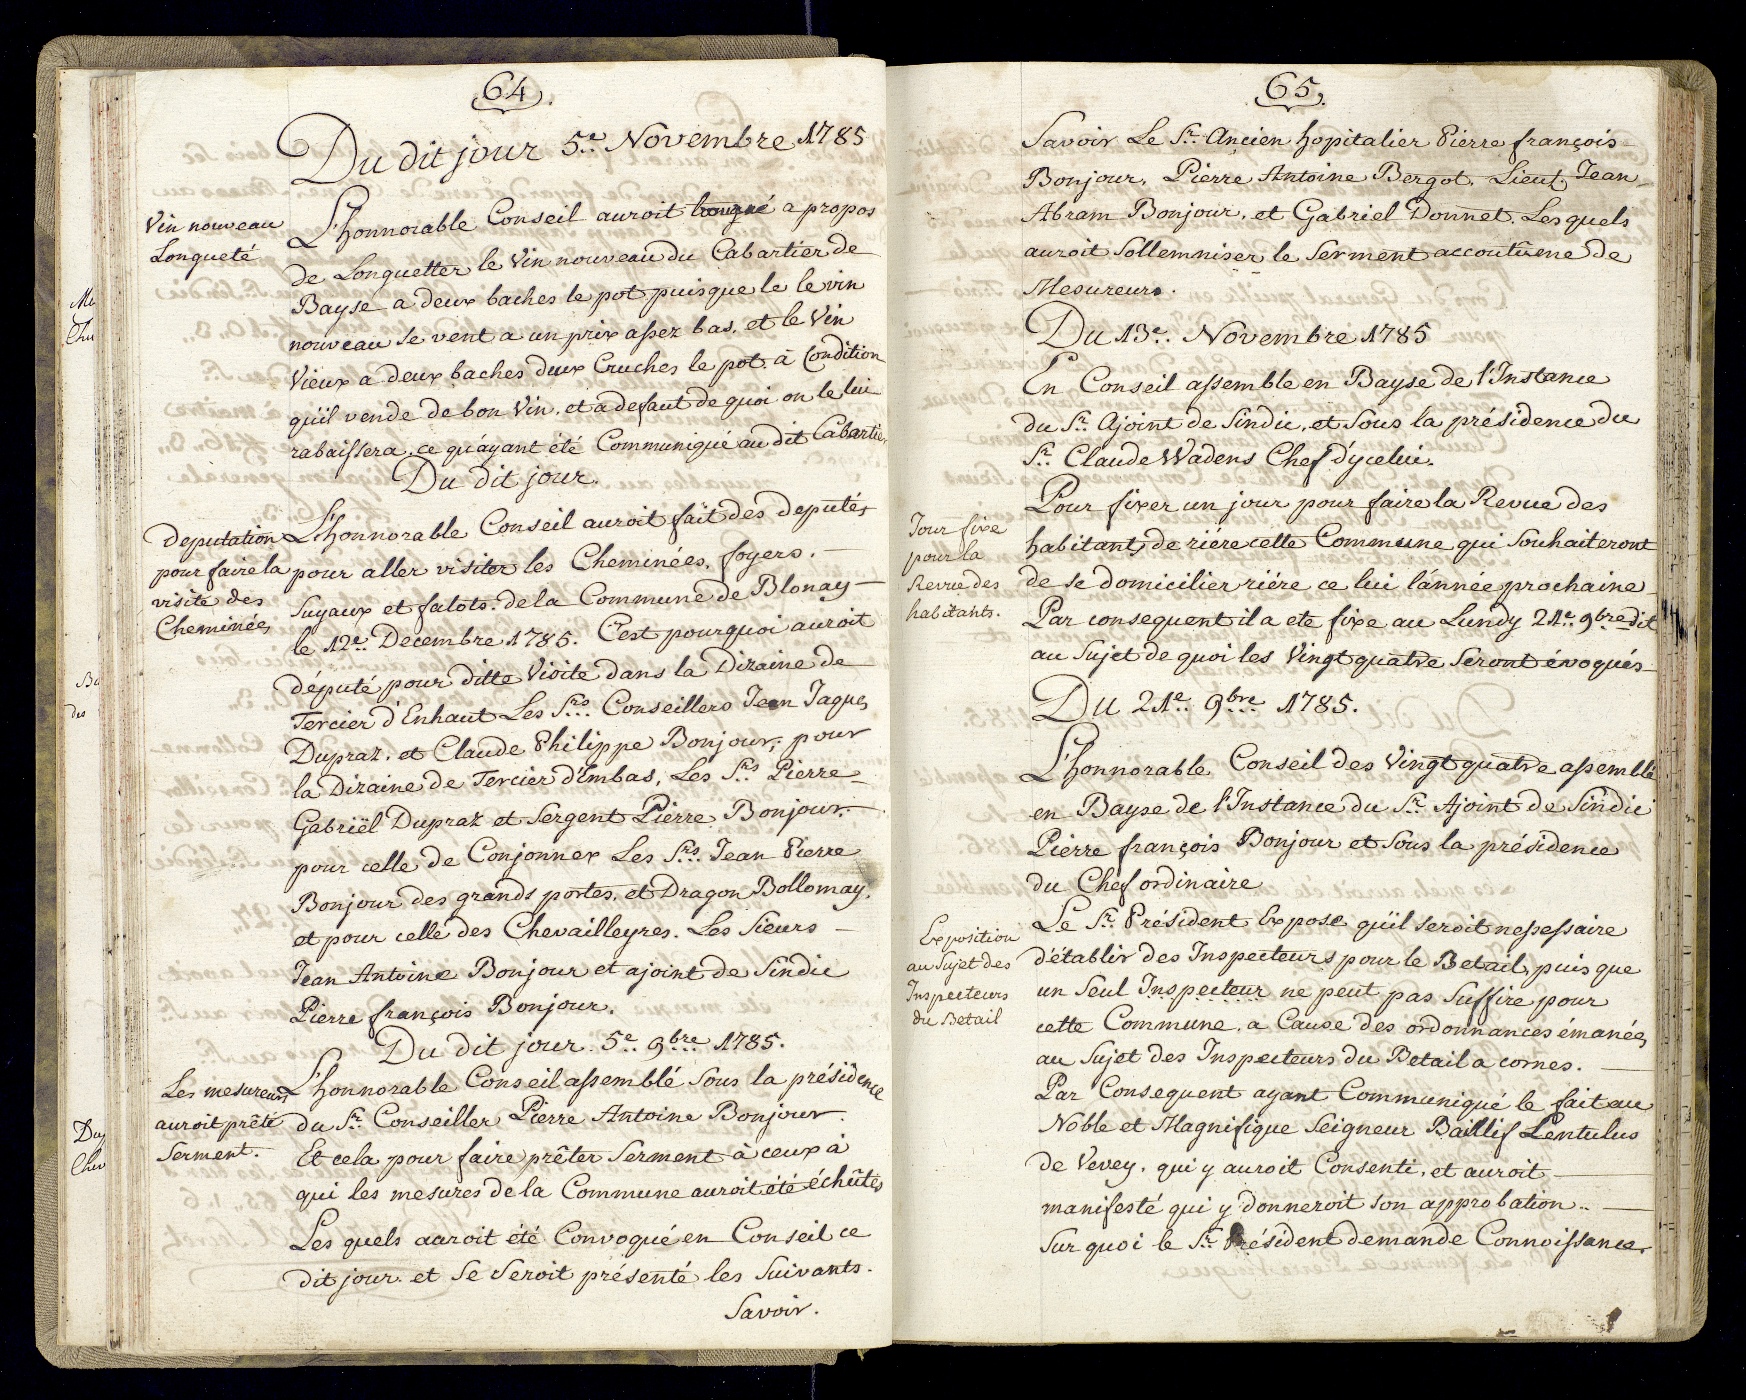 64.
Du dit jour 5.e Novembre 1785
Vin nouveau
Longueté
L'honnorable Conseil auroit trouvé a propos
de Longuetter le Vin nouveau du Cabartier de
Bayse a deux baches le pot puisque le le vin
nouveau se vent a un prix assez bas. et le Vin
Vieux a deux baches deux Cruches le pot à Condition
qu'il vende de bon Vin. et a defaut de quoi on le lui
rabaissera. ce qu'ayant été Communiqué au dit Cabartier
Du dit jour.
Deputation
pour faire la
visite des
Cheminées
L'honnorable Conseil auroit fait des deputés
pour aller visiter les Cheminées, foyers.
Suyaux et falots. de la Commune de Blonay
le 12.e Decembre 1785. C'est pourquoi auroit
député pour ditte Visite dans la Dizaine de
Tercier d'Enhaut Les S.rs Conseillers Jean Jaques
Dupraz. et Claude Philippe Bonjour; pour
la Dizaine de Tercier d'Embas, Les S.rs Pierre
Gabriël Dupraz et Sergent Pierre Bonjour.
pour celle de Conjonnex Les S.rs Jean Pierre
Bonjour des grands portes. et Dragon Bollomay.
et pour celle des Chevailleyres. Les Sieurs
Jean Antoine Bonjour et ajoint de Sindic
Pierre françois Bonjour.
Du dit jour. 5.e 9.bre 1785.
Les mesureurs
auroit prêté
Serment.
L'honnorable Conseil assemblé Sous la présidence
du S.r Conseiller Pierre Antoine Bonjour.
Et cela pour faire prêter Serment à ceux à
qui les mesures de la Commune auroit été échûtes
Les quels auroit été Convoqué en Conseil ce
dit jour. et Se Seroit présenté les Suivants.
Savoir.
65.
Savoir Le S.r Ancien hopitalier Pierre françois
Bonjour, Pierre Antoine Bergot. Lieut. Jean
Abram Bonjour, et Gabriel Donnet. Lesquels
auroit Sollemniser le Serment accoutûme de
Mesureurs.
Du 13.e Novembre 1785
En Conseil assemble en Bayse de l'Instance
du S.r Ajoint de Sindic, et Sous la présidence du
S.r Claude Wadens Chef d'ycelui.
Jour fixe
pour la
Revue des
habitants.
Pour fixer un jour pour faire la Revue des
habitants de riére cette Commune qui Souhaiteront
de se domicilier riére ce lui l'année prochaine
Par consequent il a ete fixe au Lundy 21.e 9bre dit
au Sujet de quoi les Vingt quatre Seront évoqués
Du 21.e 9.bre 1785.
L'honnorable Conseil des Vingt quatre assemblé
en Bayse de l'Instance du S.r Ajoint de Sindic
Pierre françois Bonjour et Sous la présidence
du Chef ordinaire
Exposition
au Sujet des
Inspecteurs
du Betail
Le S.r Président Expose qu'il seroit nessessaire
d'établir des Inspecteurs pour le Betail, puis que
un Seul Inspecteur ne peut pas Suffire pour
cette Commune. a Cause des ordonnances émanées
au Sujet des Inspecteurs du Betail a cornes.
Par Consequent ayant Communiqué le fait au
Noble et Magnifique Seigneur Baillif Lentulus
de Vevey. qui y auroit Consenti, et auroit
manifesté qui y donneroit son approbation..
Sur quoi le S.r Président demande Connoissance.